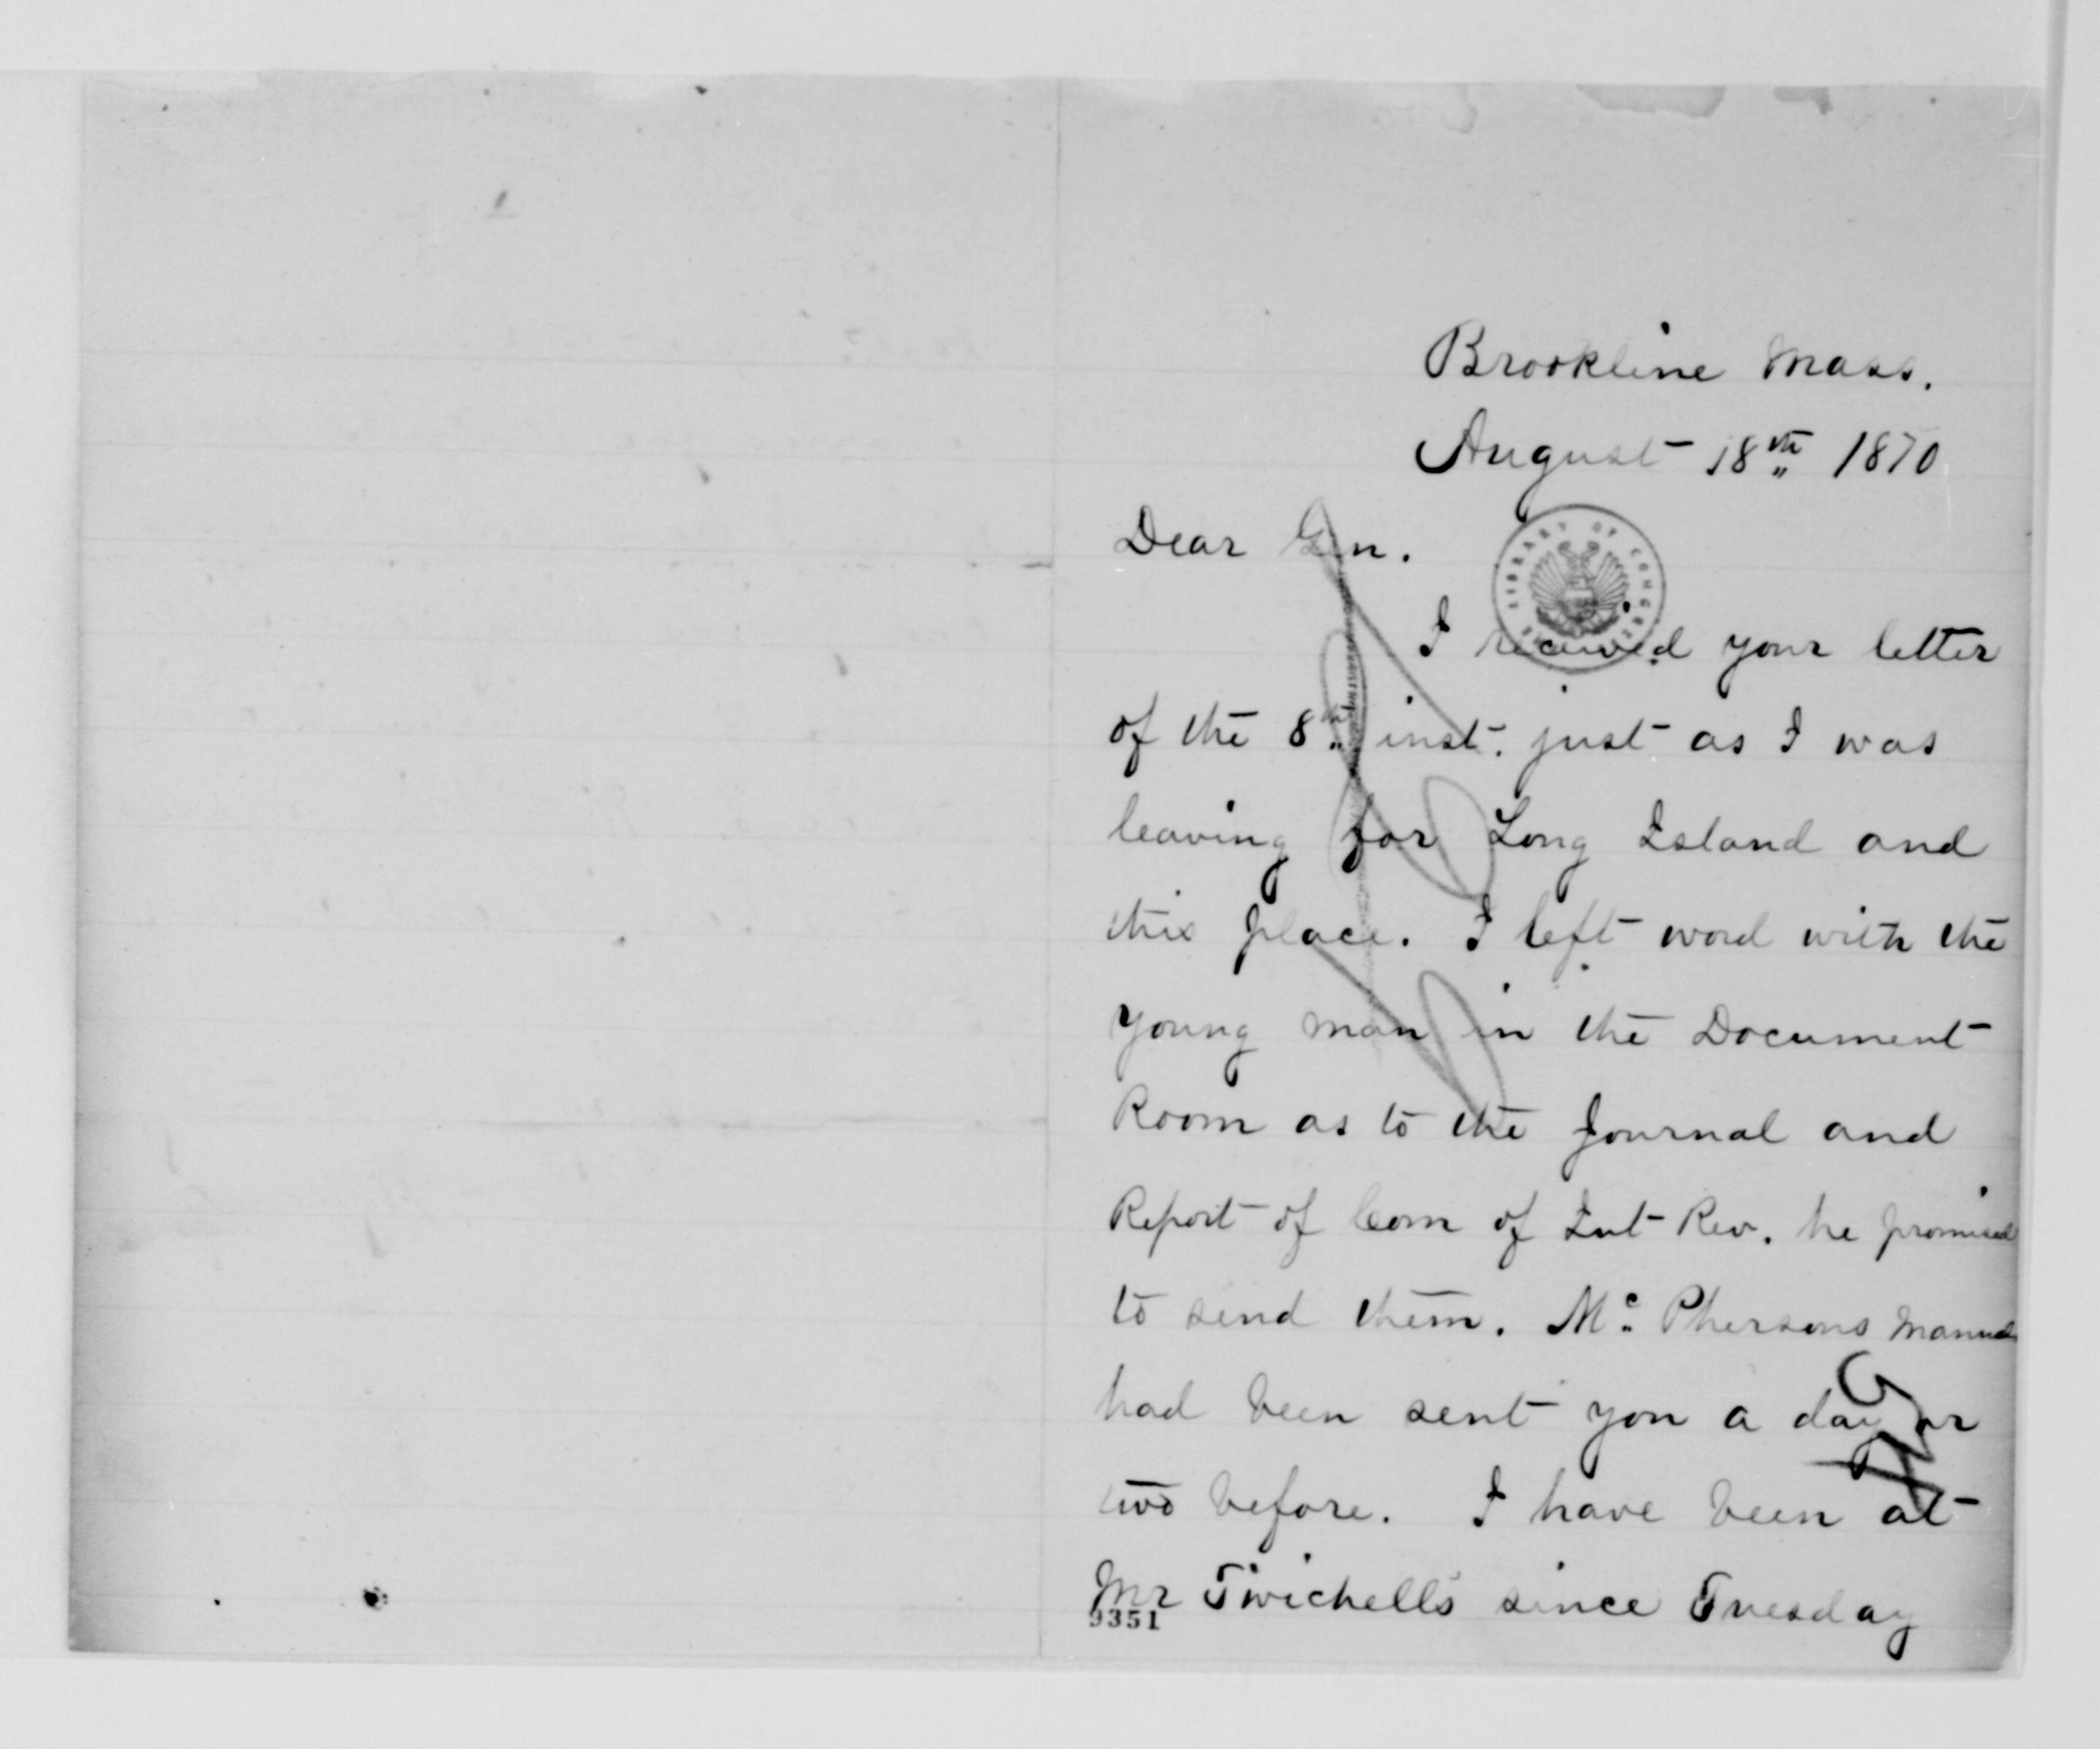 Brookline Mass.
August 18th 1870
Dear Gen.
LIBRARY OF CONGRESS
I received your letter
of the 8th inst. just as I was
leaving for Long Island and
this place. I left word with the
young man in the Document
Room as to the Journal and
Report of Com of Int Rev. he promised
to send them. Mc Phersons Manual
had been sent you a day or
two before. I have been at
Mr Twichells since Tuesday
9351